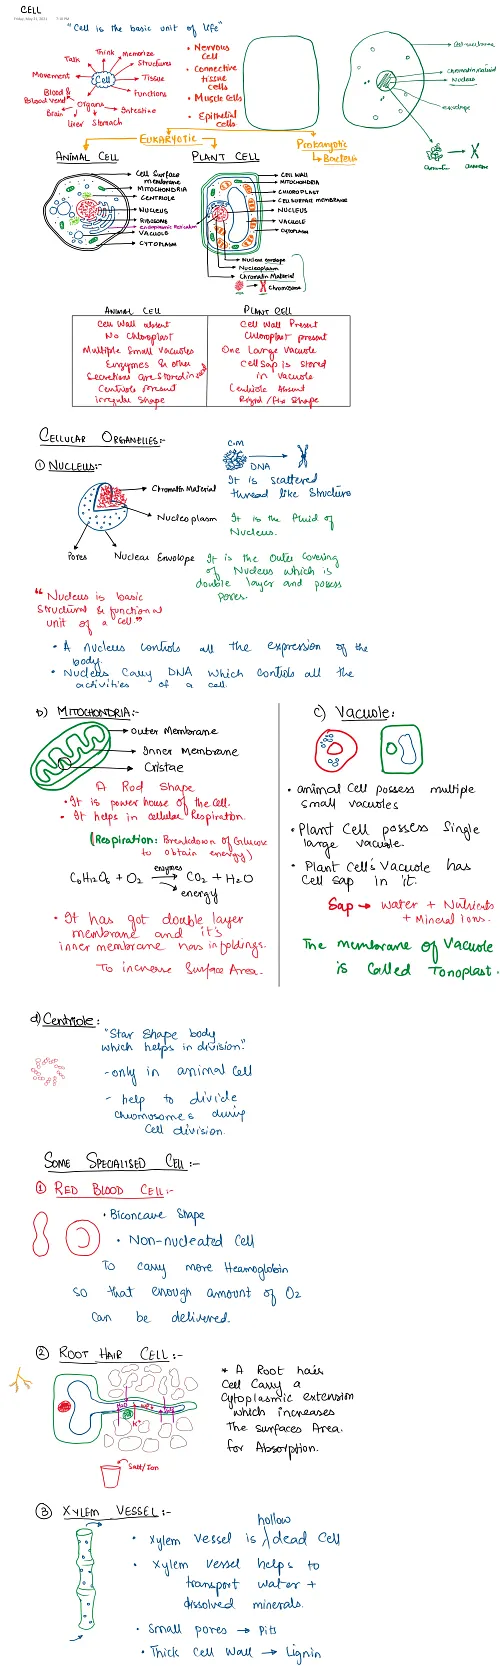 CELL
Friday, May 21, 2021 7:10 PM
"Cell is the basic unit of life"
Think
Memorize
Talk
Structures
Movement
Cell
Tissue
Functions
Blood &
Blood vessel
Organs
Brain
Intestine
Liver Stomach
• Nervous Cell
• Connective tissue cells
• Muscle Cells
• Epithelial cells
Cell membrane
Chromatin Material
Nucleus
envelope
Chromatin
Chromosome
EUKARYOTIC
Prokaryotic
Bacteria
ANIMAL CELL
PLANT CELL
Cell Surface membrane
MITOCHONDRIA
CENTRIOLE
NUCLEUS
RIBOSOME
Endoplasmic Reticulum
VACUOLE
CYTOPLASM
CELL WALL
MITOCHONDRIA
CHLOROPLAST
CELL SURFACE MEMBRANE
NUCLEUS
VACUOLE
CYTOPLASM
Nuclear envelope
Nucleoplasm
Chromatin Material
Chromosome
ANIMAL CELL
PLANT CELL
Cell Wall absent
Cell Wall Present
No Chloroplast
Chloroplast present
Multiple Small Vacuoles
One Large Vacuole
Enzymes & other
Secretions are stored in
Cell Sap is stored
in Vacuole
Centriole Present
Centriole Absent
irregular Shape
Rigid / Fix Shape
CELLULAR ORGANELLES:-
① NUCLEUS:-
C.M
DNA
Chromatin Material
It is scattered
thread like Structure
Nucleoplasm
It is the fluid of
Nucleus.
Pores
Nuclear Envelope
It is the Outer Covering
of Nucleus which is
double layer and possess
pores.
"Nucleus is basic
Structural & functional
unit of a cell."
• A nucleus controls all the expression of the
body.
• Nucleus Carry DNA which controls all the
activities of a cell.
b) MITOCHONDRIA:-
Outer Membrane
Inner Membrane
Cristae
A Rod Shape
• It is power house of the Cell.
• It helps in cellular Respiration.
(Respiration: Breakdown of Glucose
to obtain energy)
C6H12O6 + O2 enzymes CO2 + H2O
energy
• It has got double layer
membrane and it's
inner membrane has infoldings.
To increase Surface Area.
c) Vacuole:
• animal Cell possess multiple
small vacuoles
• Plant Cell possess Single
large vacuole.
• Plant Cell's Vacuole has
Cell sap in it.
Sap → water + Nutrients
+ Mineral Ions.
The membrane of Vacuole
is Called Tonoplast.
d) Centriole:
"Star Shape body
which helps in division."
- only in animal Cell
- help to divide
Chromosomes during
Cell division.
SOME SPECIALISED CELL:-
① RED BLOOD CELL:-
• Biconcave Shape
• Non-nucleated Cell
To carry more Heamoglobin
so that enough amount of O2
can be delivered.
② ROOT HAIR CELL:-
* A Root hair
Cell Carry a
Cytoplasmic extension
which increases
The surfaces Area.
for Absorption.
K+
Salt/Ion
③ XYLEM VESSEL:-
hollow
• Xylem Vessel is dead Cell
• Xylem Vessel helps to
transport water +
dissolved minerals.
• Small pores → Pits
• Thick Cell Wall → Lignin